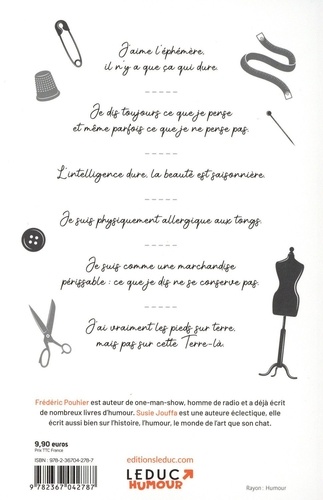 J'aime l'éphémère,
il n'y a que ça qui dure.
Je dis toujours ce que je pense
et même parfois ce que je ne pense pas.
L'intelligence dure, la beauté est saisonnière.
Je suis physiquement allergique aux tongs.
Je suis comme une marchandise
périssable : ce que je dis ne se conserve pas.
J'ai vraiment les pieds sur terre,
mais pas sur cette Terre-là.
Frédéric Pouhier est auteur de one-man-show, homme de radio et a déjà écrit
de nombreux livres d'humour. Susie Jouffa est une auteure éclectique, elle
écrit aussi bien sur l'histoire, l'humour, le monde de l'art que son chat.
9,90 euros
Prix TTC France
ISBN : 978-2-36704-278-7
9 782367 042787
editionsleduc.com
LEDUC
HUMOUR
Rayon : Humour